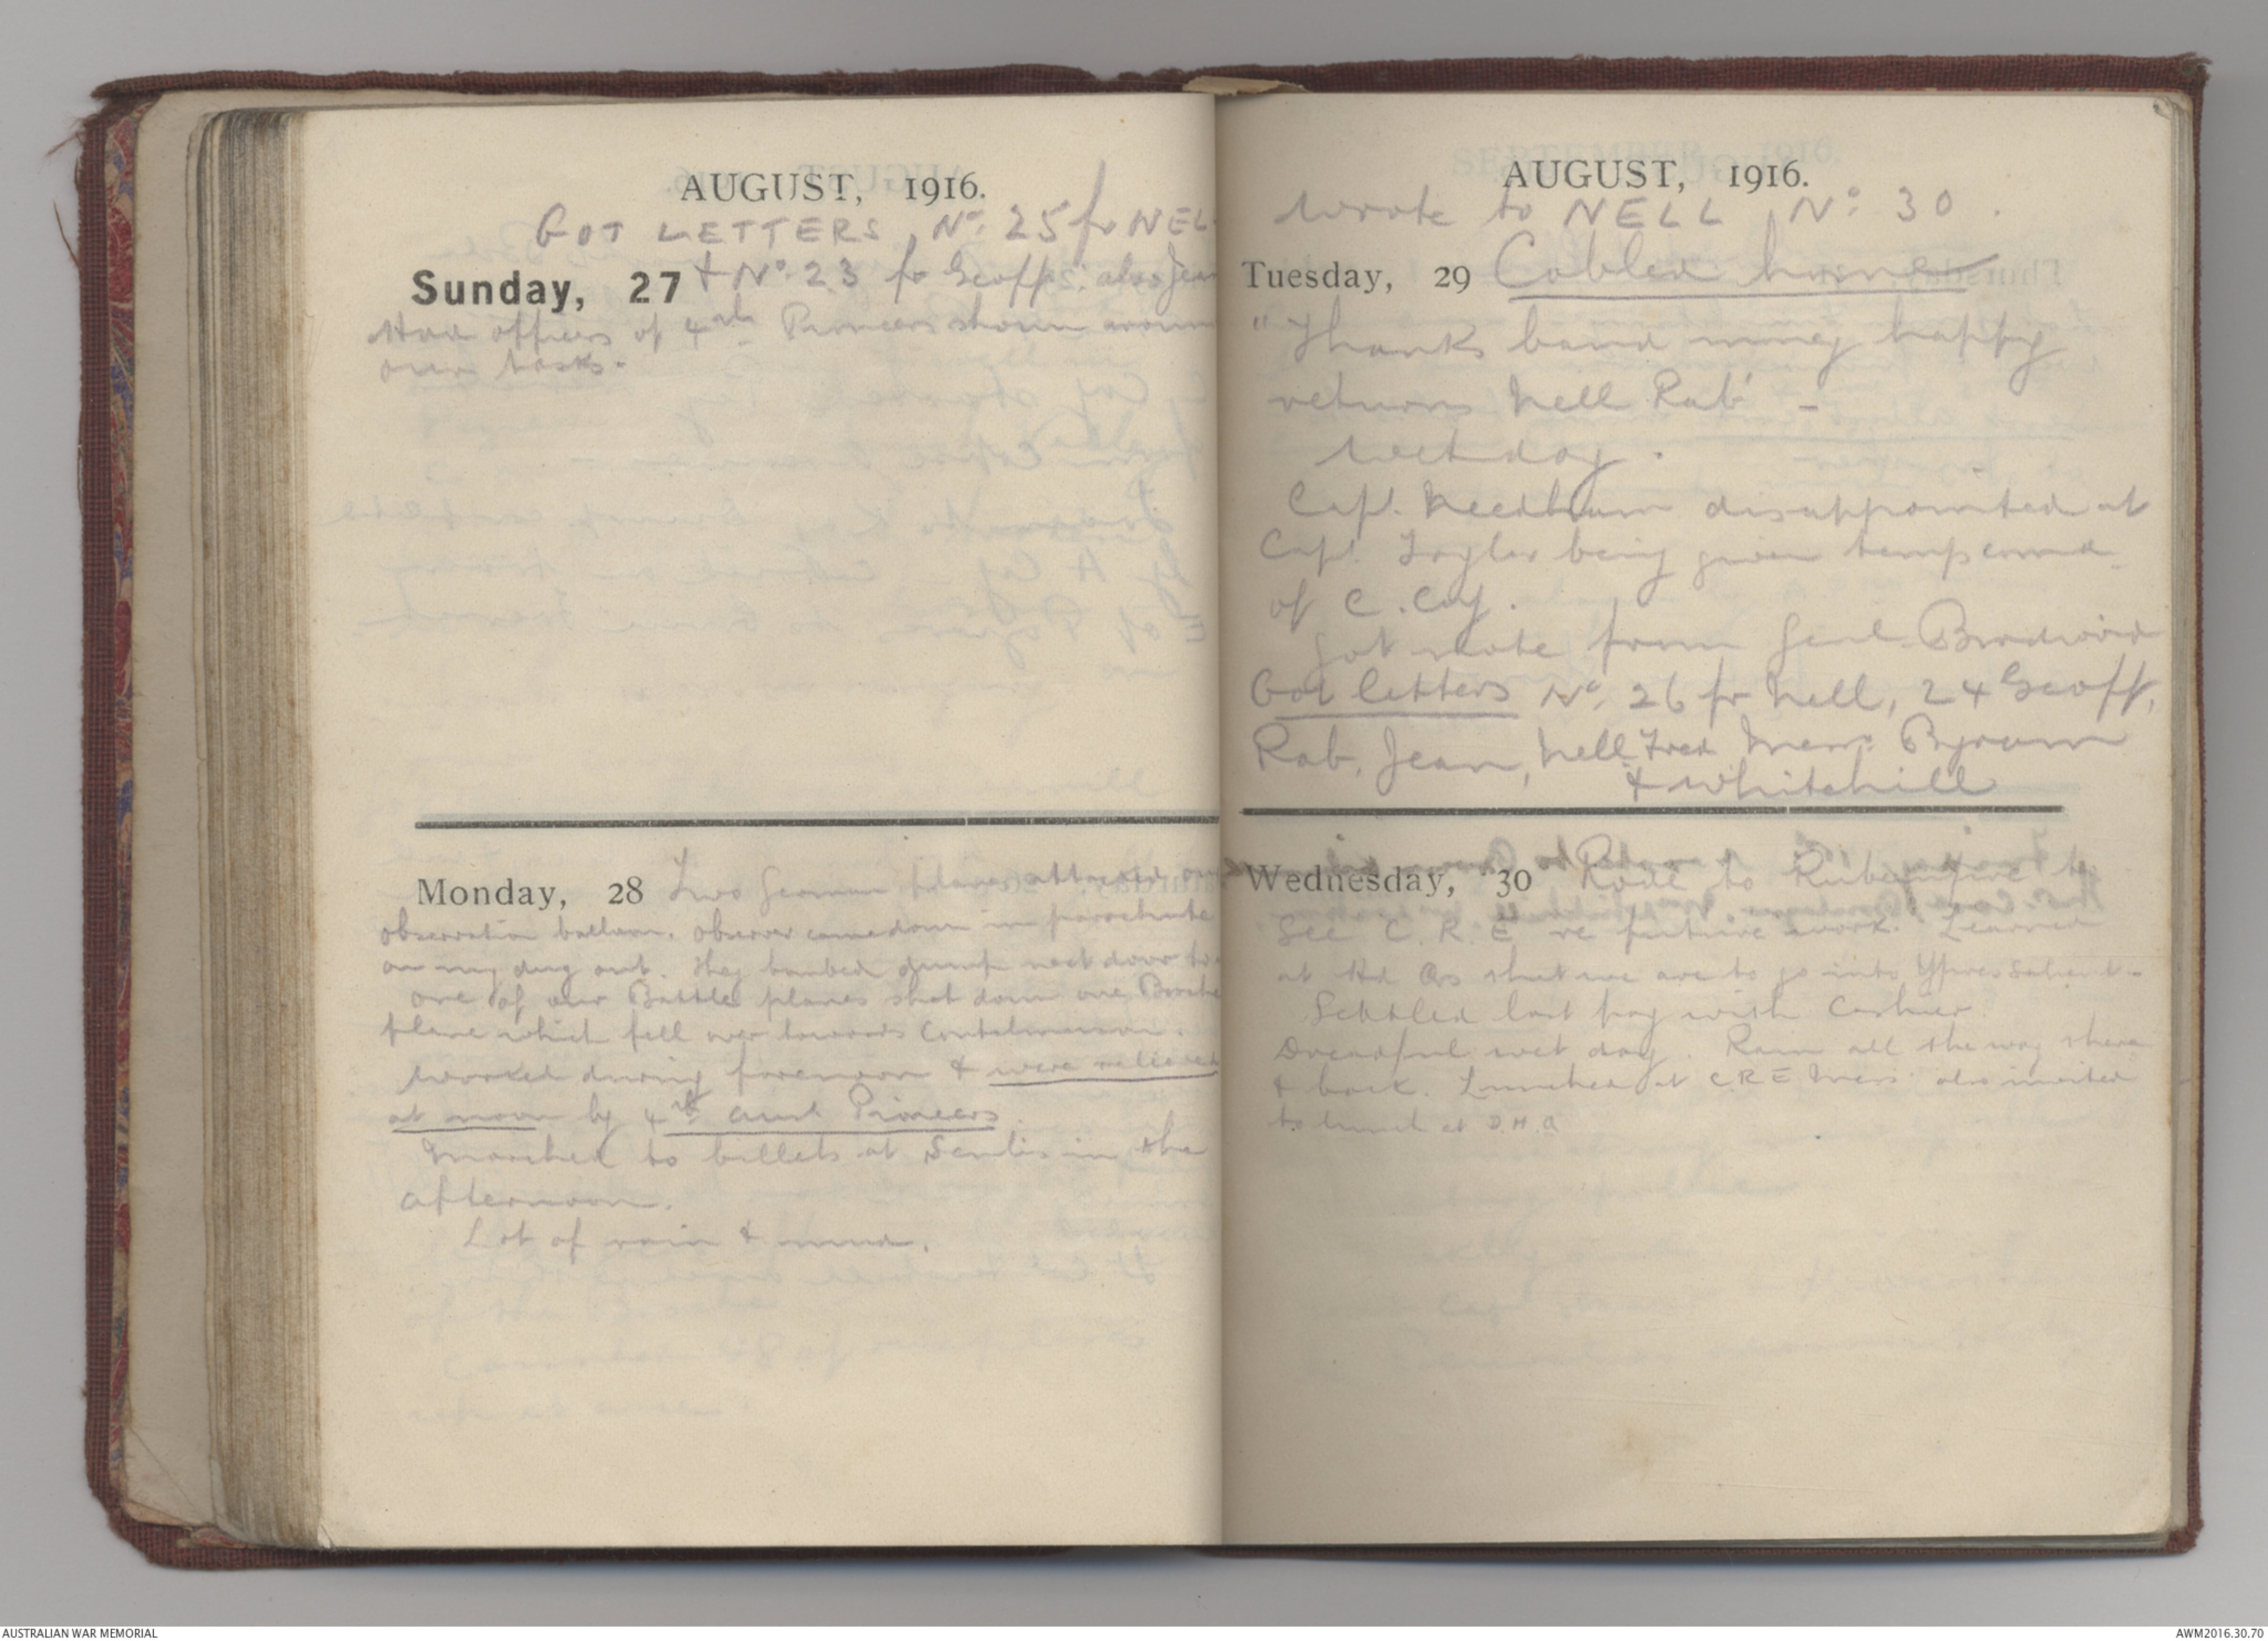 AUGUST, 1916.
GOT LETTERS No. 25 fr NELL
Sunday, 27 & No. 23 fr Geoff also Jean
Had officers of 4th Pioneers shown around
our tasks.
Monday, 28 Two German planes attacked our
observation balloon. Observer came down in parachute
on my dug out. They bombed dump next door to
one of our Battle planes shot down one Boche
plane which fell over towards Contalmaison.
Worked during forenoon & were relieved
at noon by 4th Aust Pioneers.
Marched to billets at Senlis in the
afternoon.
Lot of rain & mud.
AUGUST, 1916.
Wrote to NELL No. 30.
Tuesday, 29 Cabled home
"Thanks band many happy
returns Nell Rab" -
Wet day.
Capt. Needham disappointed at
Capt. Taylor being given temp comd
of C. Coy.
Got note from Genl. Birdwood
Got letters No. 26 fr Nell, 24 Geoff,
Rab, Jean, Nell Fred Byram
& Whitehill
Wednesday, 30 Rode to Rubempre to
see C.R.E. re future work. Learned
at Hd Qrs that we are to go into Ypres Salient -
Settled last pay with Cashier.
Dreadful wet day. Rain all the way there
& back. Lunched at C.R.E Mess also invited
to lunch at D.H.Q
AUSTRALIAN WAR MEMORIAL
AWM2016.30.70